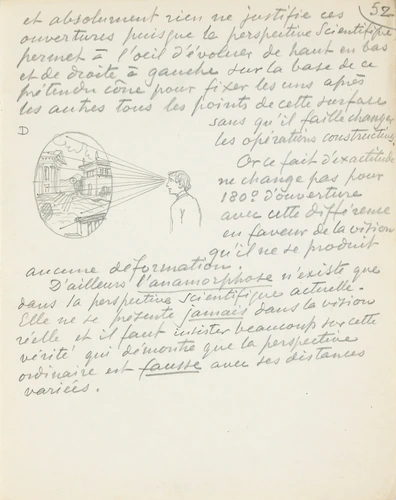 52
et absolument rien ne justifie ces
ouvertures puisque la perspective Scientifique
permet à l'oeil d'évoluer de haut en bas
et de droite à gauche sur la base de ce
prétendu cône pour fixer les uns après
les autres tous les points de cette surface
sans qu'il faille changer
les opérations constructives
D
Or ce fait d'exactitude
ne change pas pour
180° d'ouverture
avec cette différence
en faveur de la vision
qu'il ne se produit
aucune déformation.
D'ailleurs l'anamorphose n'existe que
dans la perspective scientifique actuelle.
Elle ne se présente jamais dans la vision
réelle et il faut insister beaucoup sur cette
vérité qui démontre que la perspective
ordinaire est fausse avec ses distances
variées.